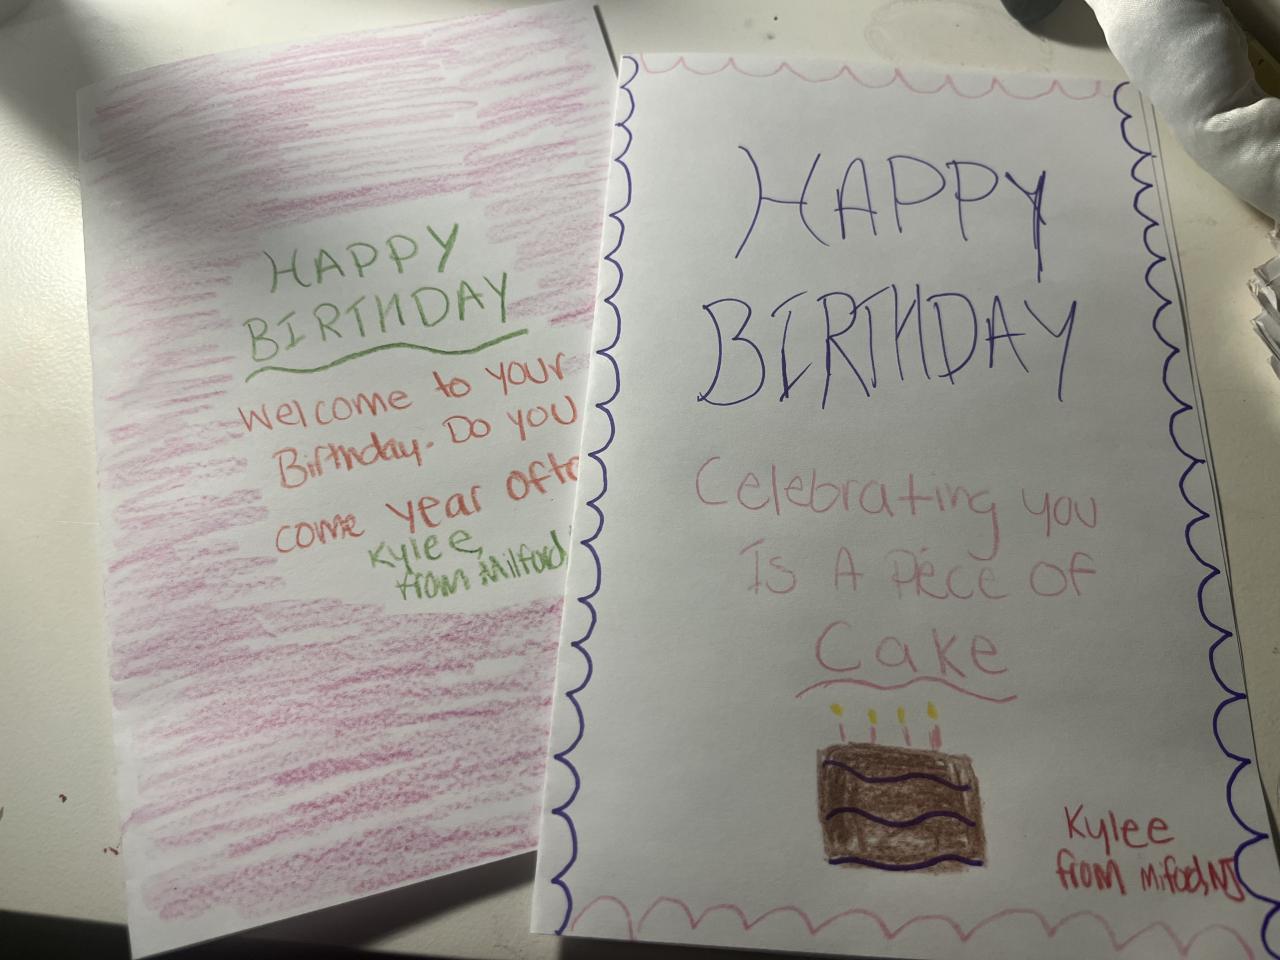 HAPPY
BIRTHDAY
Welcome to your
Birthday. Do you
come year ofte
Kylee,
from Milford
HAPPY
BIRTHDAY
Celebrating you
Is A Piéce of
Cake
Kylee
from Miford, NJ